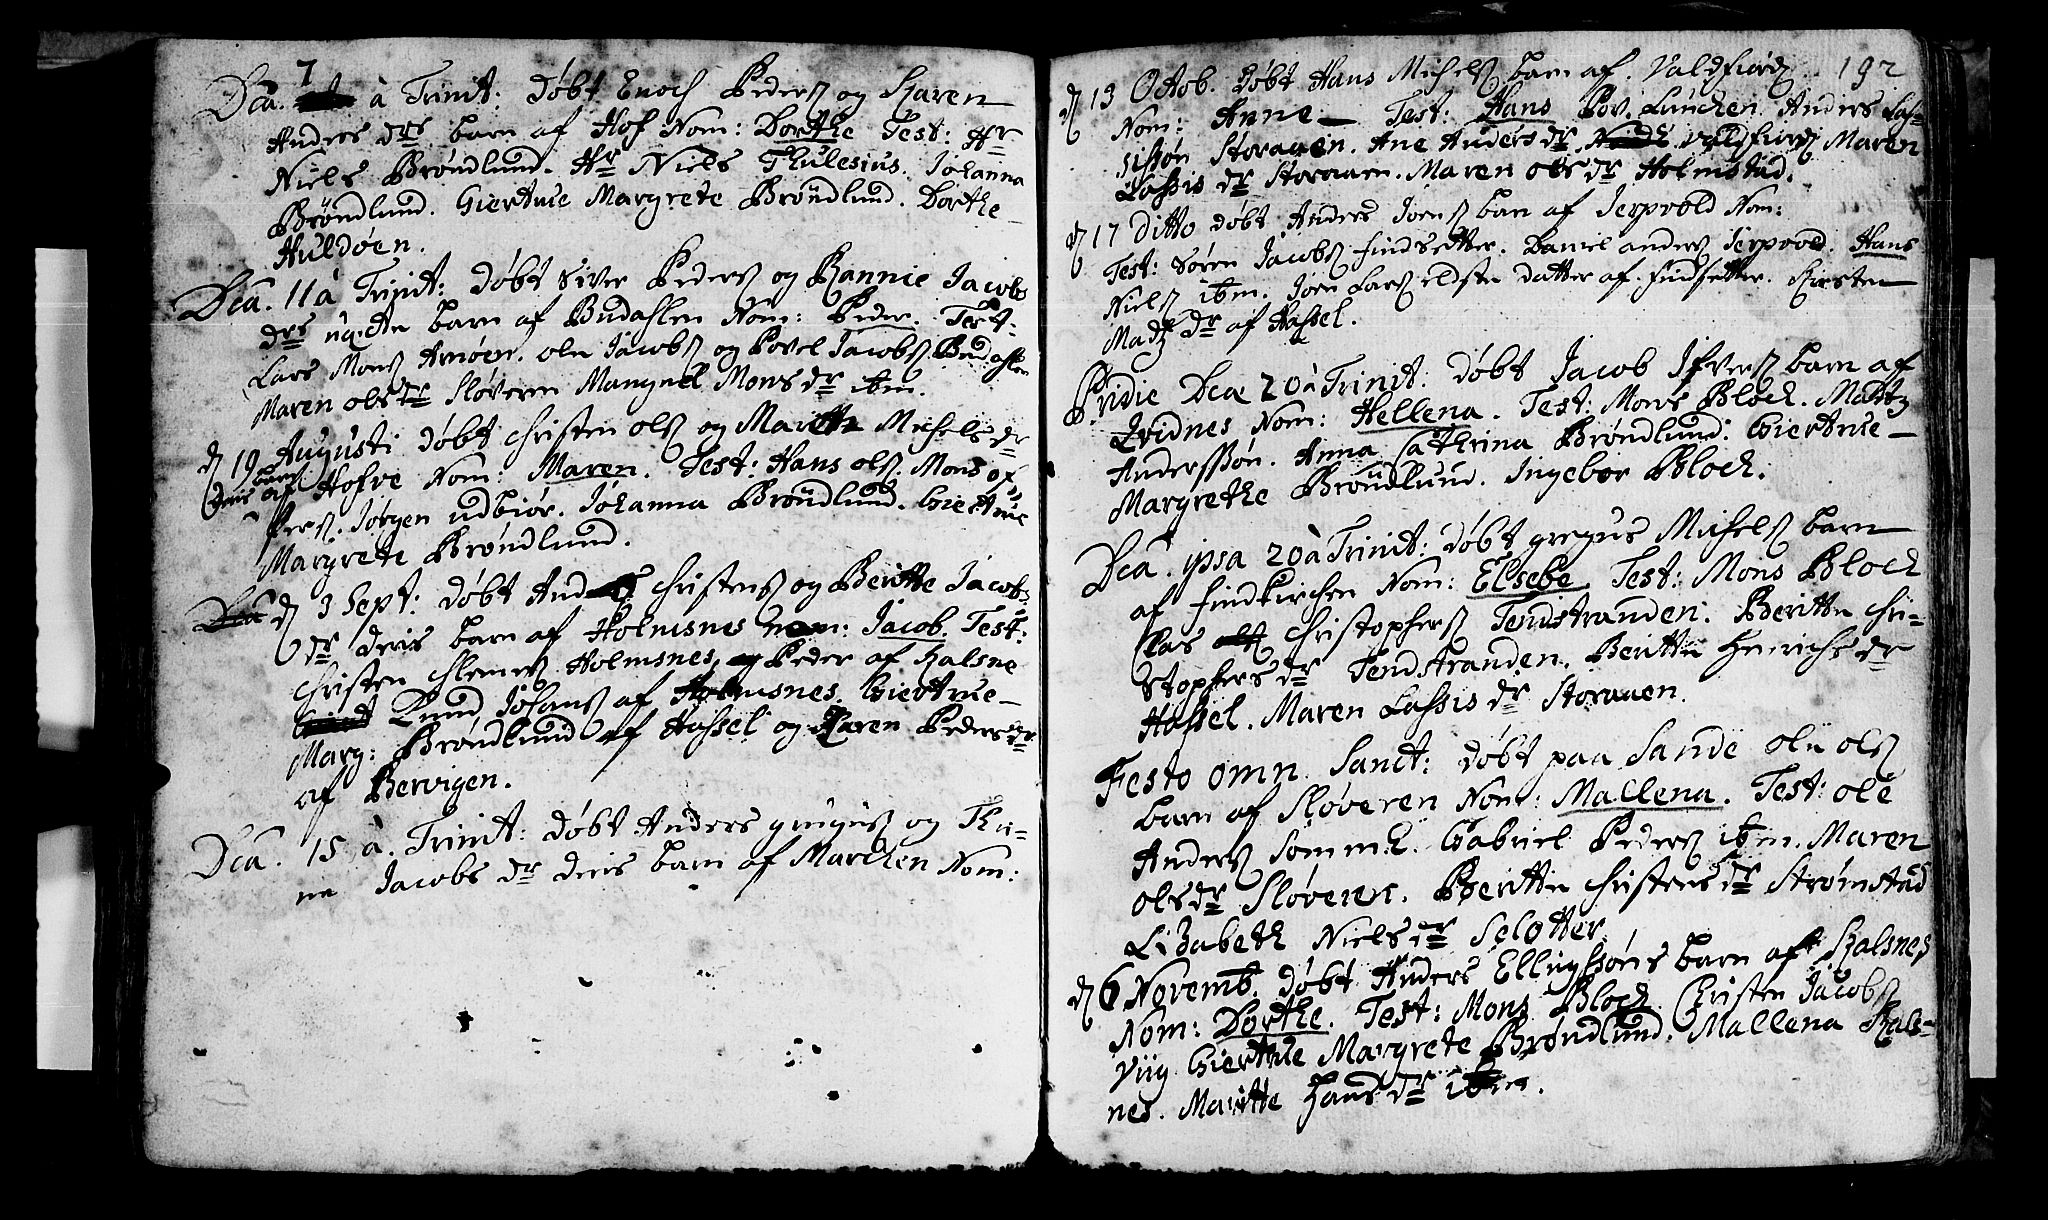 7
Dca. à Trinit: döbt Enoch Peders og Karen
Anders drs barn af Hof Nom: Dorthe Test: Hr
Niels Bröndlund. Hr Niels Thulesius. Johanna
Bröndlund. Giertrue Margrete Bröndlund. Dorthe
Huldöen.
Dca. 11 à Trinit: döbt Siver Peders og Rannie Jacobs
drs uæcte barn af Budahlen Nom: Peder. Test:
Lars Mons Arnöen. ole Jacobs og Povel Jacobs Budahlen
Maren ols dr Slöveren Mangnel Mons dr ibm.
d 19 Augusti döbt Christen ols og Maritte Michels dr
deris barn af Hofve Nom: Maren. Test: Hans ols. Mons
Pers. Jörgen udbiör. Johanna Bröndlund. Giertrue
Margrete Bröndlund.
d 3 Sept: döbt And Christens og Beritte Jacobs
dr deris barn af Holmsnes nom: Jacob. Test:
Christen Clemes Holmsnes, og Peder af Kalsne
Knud Johans af Holmsnes. Giertrue
Marg: Bröndlund af Hassel og Karen Peders dr
af Bervigen.
Dca. 15 à Trinit: döbt Anders gregus og Thri=
ne Jacobs dr deris barn af Marchen Nom:
192
d 13 Octob. döbt Hans Michels barn af Valdfiord
Nom: Anne Test: Hans Pov. Lunchen. Anders Las=
sissön Storaaen. Ane Anders dr Valdfiord Maren
Lassis dr Storaaen. Maren ols dr Holmstad.
d 17 Ditto döbt Anders Joens barn af Jerpvold Nom:
Hans
Test: Sören Jacobs findsetter. Daniel anders Jerpvold.
Niels ibm. Joen Lars eldste datter af findsetter. Kirsten
Madz dr af Hassel.
Pridie Dca 20 à Trinit: döbt Jacob Ifvers barn af
Qvidnes Nom: Hellena. Test: Mons Block. Madtz
Andersson. Anna Cathrina Bröndlund. Giertrue
Margrethe Bröndlund. Ingebor Block.
Dca. ipsa 20 à Trinit: döbt gregus Michels barn
af findkirchen Nom: Elsebe. Test: Mons Block
Clas Christophers Tendstranden. Beritte Chri=
stophers dr Tendstranden. Beritte Henrichs dr
Hassel. Maren Lassis dr Storaaen.
Festo omn. Sanct: döbt paa Sande ole ols
barn af Slöveren Nom: Mallena. Test: ole
Anders Somm Gabriel Peders ibm. Maren
ols dr Slöveren. Beritte Christens dr Strömstad
Lizabeth Niels dr Selotter.
d 6 Novemb. döbt Anders Ellingssöns barn af Kalsnes
Nom: Dorthe. Test: Mons Block. Christen Jacobs
Viig Giertrue Margrete Bröndlund. Mallena Kals=
nes. Maritte Hans dr ibm.